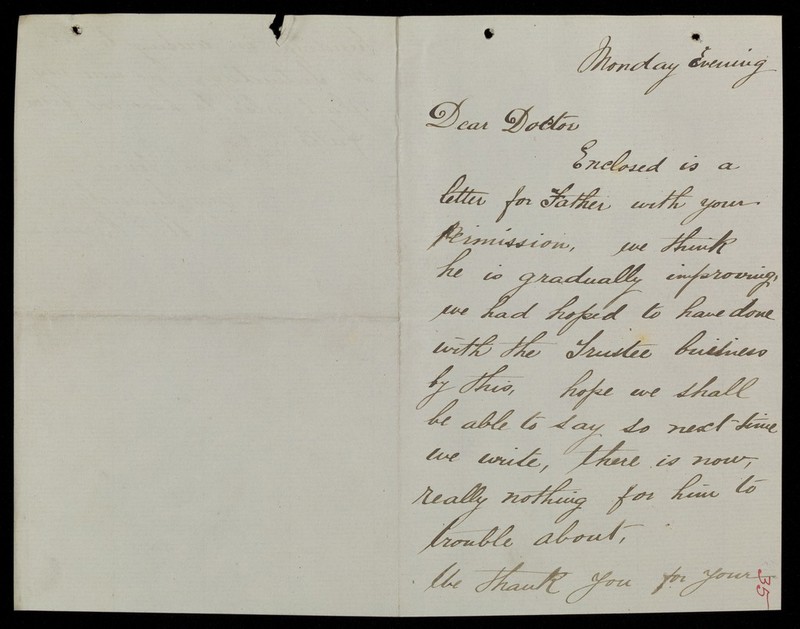 Monday Evening
Dear Doctor
Enclosed is a
letter for Father with your
Permission, we think
he is gradually improving,
we had hoped to have done
with the Trustee business
by this, hope we shall
be able to say so next time
we write, there is now,
really nothing for him to
trouble about,
We thank you for your
35